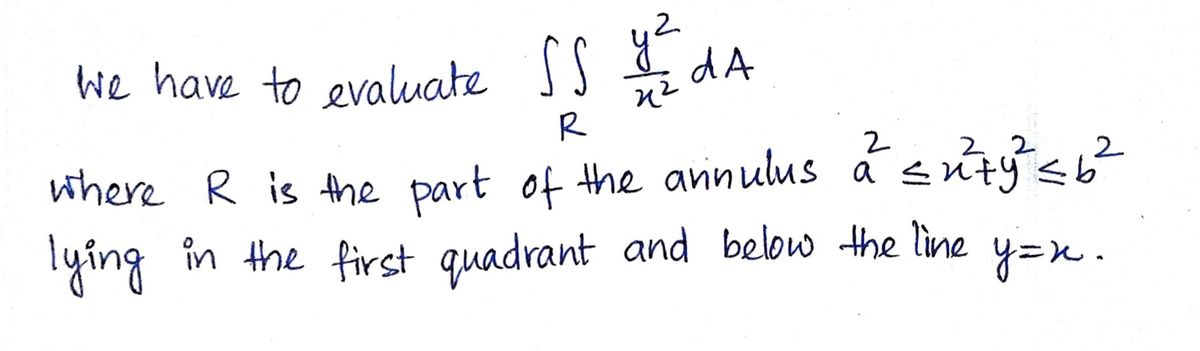 We have to evaluate ∫∫_R y²/x² dA
where R is the part of the annulus a² ≤ x²+y² ≤ b²
lying in the first quadrant and below the line y=x.